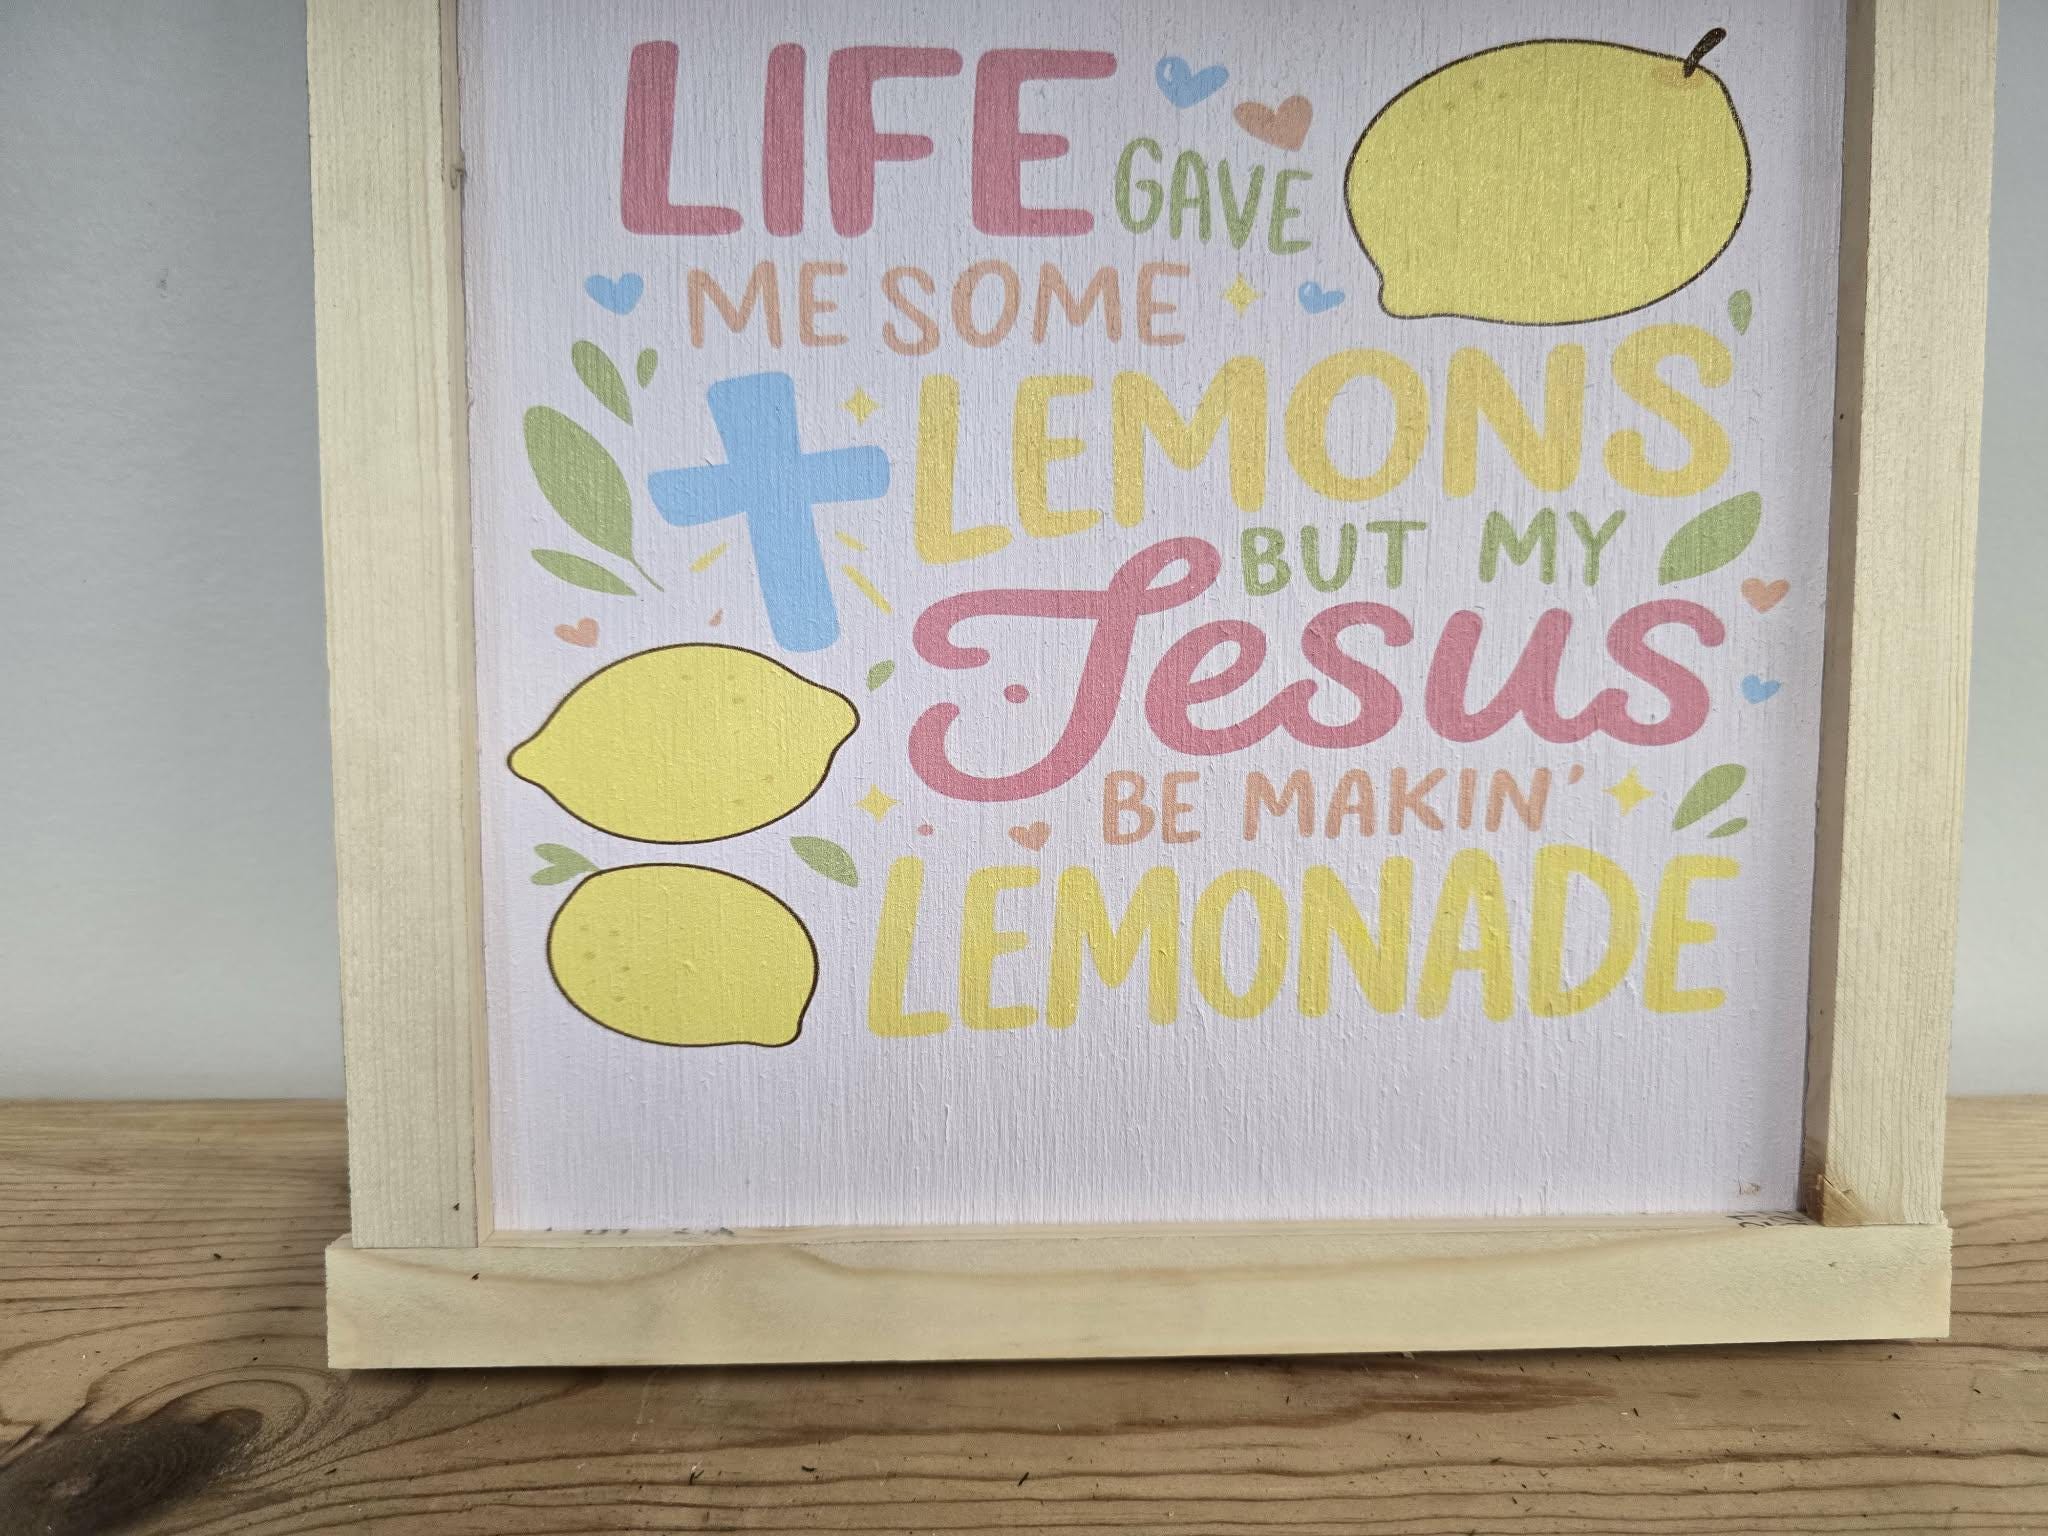 LIFE GAVE
ME SOME
LEMONS
BUT MY
Jesus
BE MAKIN'
LEMONADE